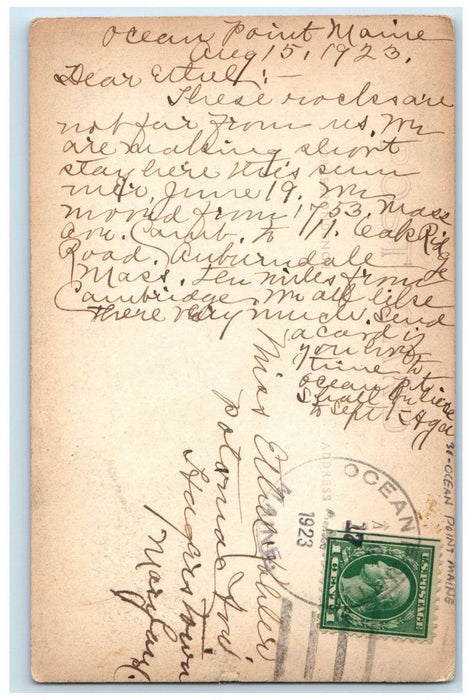 Ocean Point Maine
Aug 15, 1923.
Dear Ethel:—
These rocks are
not far from us, We
are making short
stay here this sum
mer, June 19. We
moved from 1753. Mass
ave. Camb. to 11. Oak Ridge
Road. Auburndale
Mass. ten miles from
Cambridge. We all like
there very much. Send
a card if
you
time to
Ocean Pt.
Shall be here
to Sept 1
Miss Ethel
Potomac Ave
Hagerstown
Maryland.
OCEAN
17
1923
ADDRESS
U.S. POSTAGE
1 CENT 1
38-OCEAN POINT MAINE